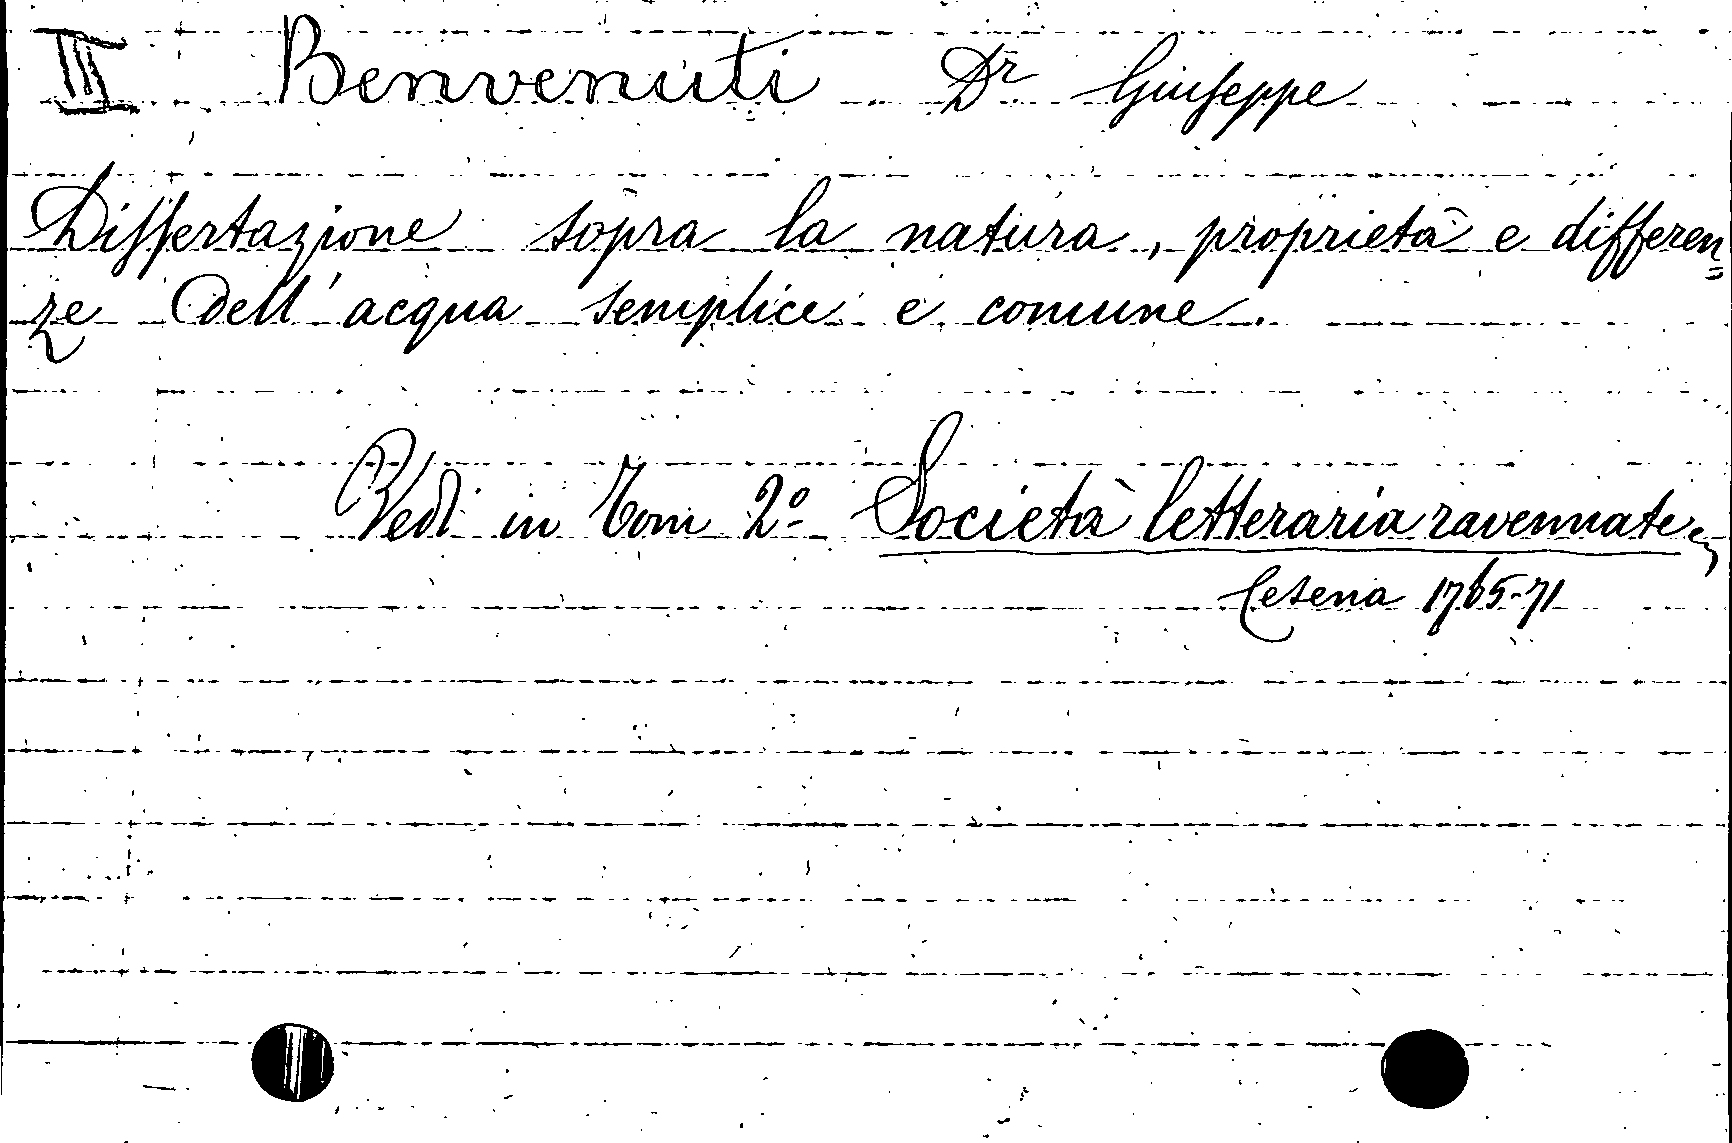 III Benvenuti Dr Giuseppe
Dissertazione sopra la natura, proprietà e differen=
ze dell'acqua semplice e comune.
Vedi in Tom 2º Società letteraria ravennate
Cesena 1765-71